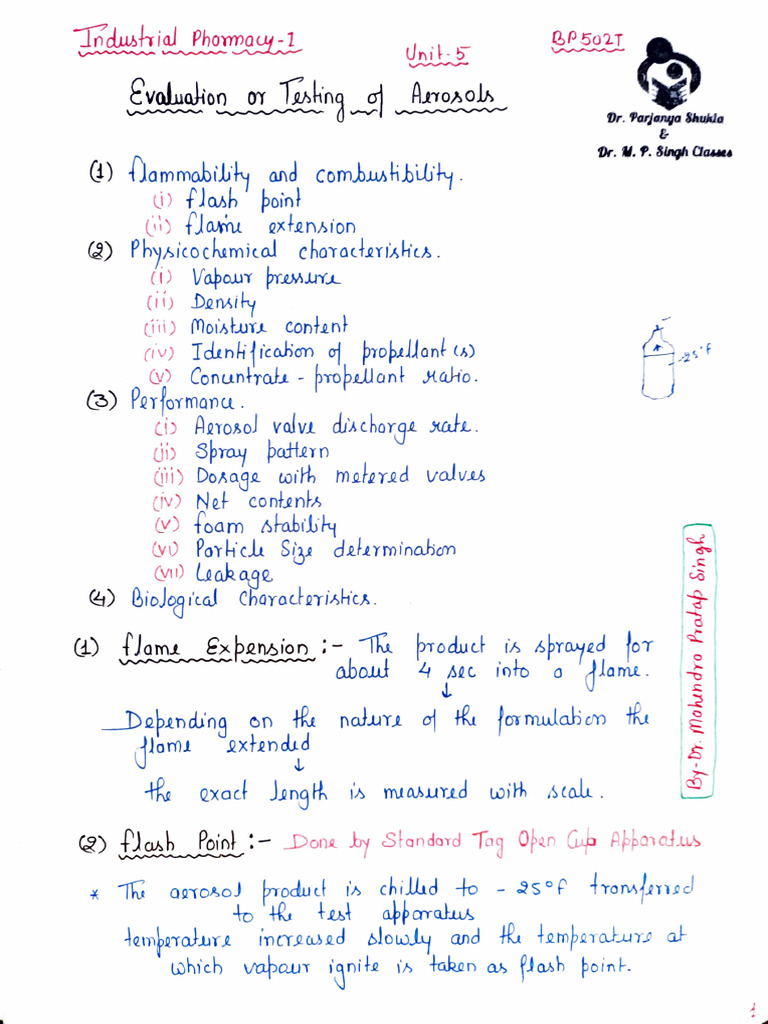 Industrial Pharmacy-I
Unit-5
BP502T
Evaluation or Testing of Aerosols
Dr. Parjanya Shukla
&
Dr. M. P. Singh Classes
(1) flammability and combustibility.
(i) flash point
(ii) flame extension
(2) Physicochemical characteristics.
(i) Vapour pressure
(ii) Density
(iii) Moisture content
(iv) Identification of propellant(s)
(v) Concentrate - propellant ratio.
-25°F
(3) Performance.
(i) Aerosol valve discharge rate.
(ii) Spray pattern
(iii) Dosage with metered valves
(iv) Net contents
(v) foam stability
(vi) Particle Size determination
(vii) Leakage
(4) Biological Characteristics.
By-Dr. Mahendra Pratap Singh
(1) flame Expension :- The product is sprayed for
about 4 sec into a flame.
↓
Depending on the nature of the formulation the
flame extended
↓
the exact length is measured with scale.
(2) flash Point :- Done by Standard Tag Open Cup Apparatus
* The aerosol product is chilled to - 25°F transferred
to the test apparatus
temperature increased slowly and the temperature at
which vapour ignite is taken as flash point.
1